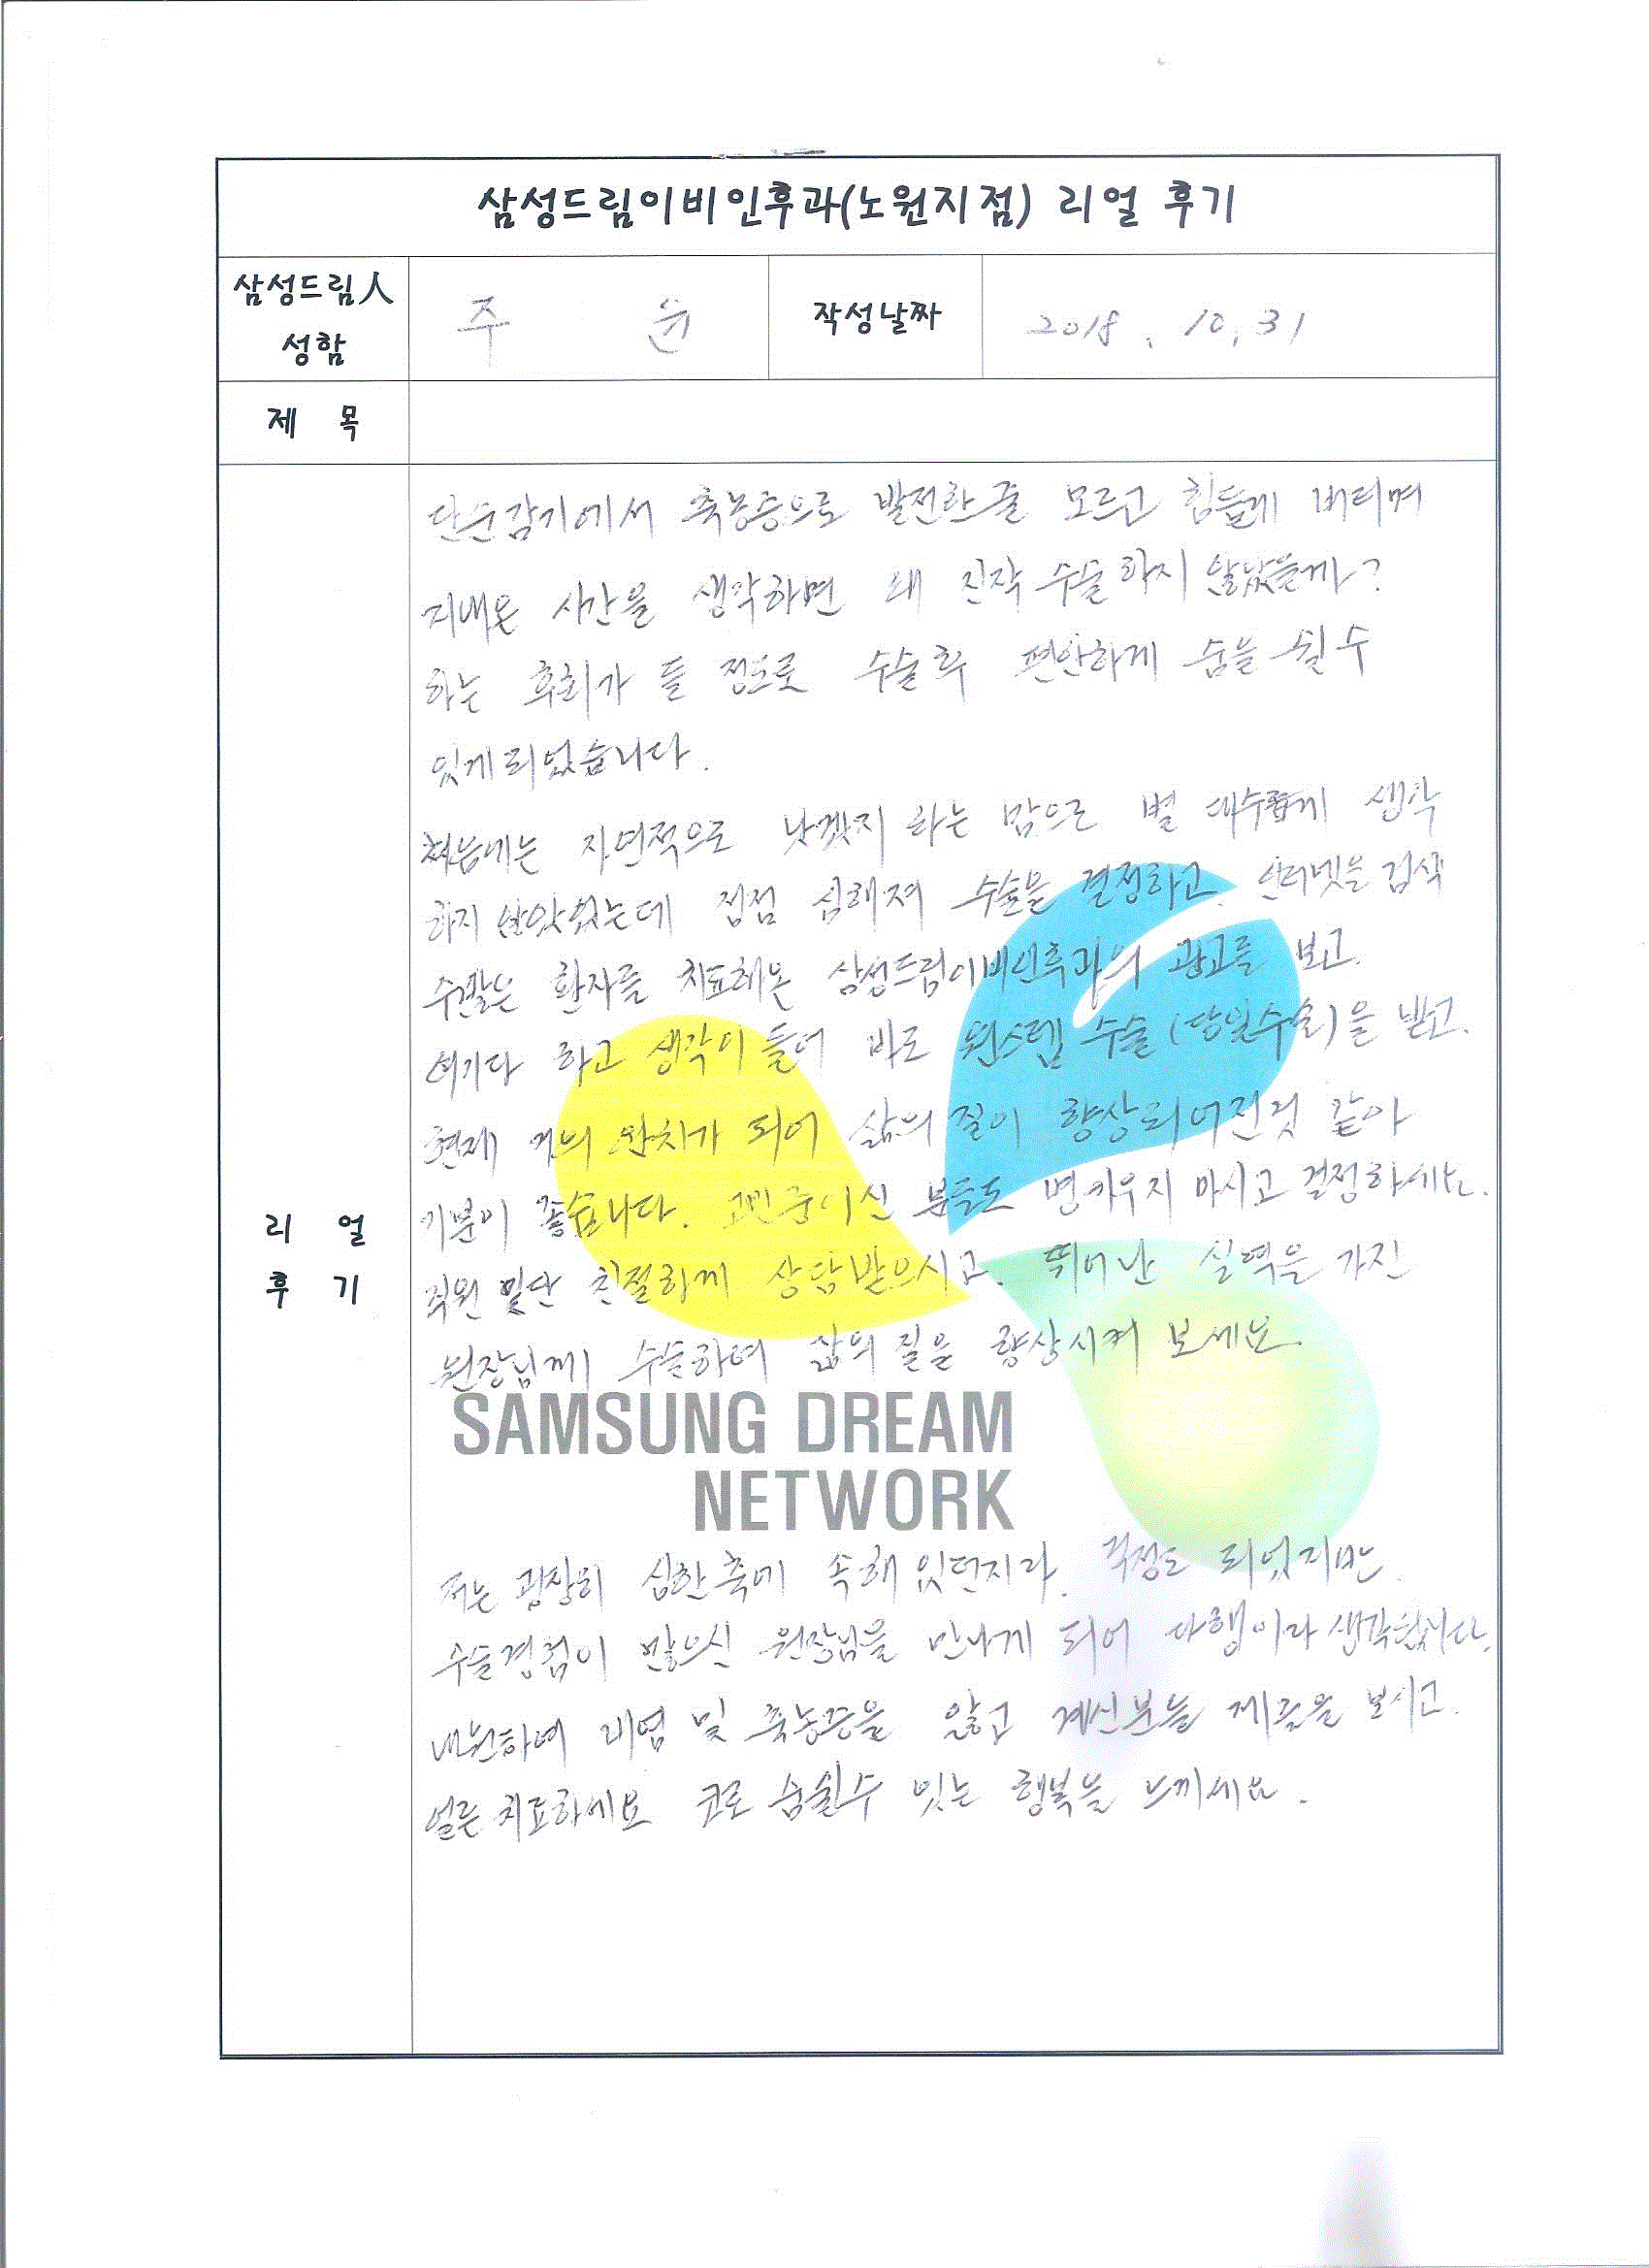 삼성드림이비인후과(노원지점) 리얼 후기
삼성드림人
성함
주 윤
작성날짜
2018. 10. 31
제 목
단순감기에서 축농증으로 발전한줄 모르고 힘들게 버티며
지내온 시간을 생각하면 왜 진작 수술하지 않았을까?
하는 후회가 들 정도로 수술후 편안하게 숨을 쉴수
있게 되었습니다.
처음에는 자연적으로 낫겠지 하는 맘으로 별 대수롭게 생각
하지 않았었는데 점점 심해져 수술을 결정하고. 인터넷을 검색
수많은 환자를 치료해온 삼성드림이비인후과의 광고를 보고.
여기다 하고 생각이 들어 바로 원스텝 수술(당일수술)을 받고.
현재 거의 완치가 되어 삶의 질이 향상되어진것 같아
기분이 좋습니다. 고민중이신 분들도 병키우지 마시고 결정하세요.
직원 밑단 친절하게 상담받으시고. 뛰어난 실력을 가진
원장님께 수술하여 삶의 질을 향상시켜 보세요.
리 얼
후 기
SAMSUNG DREAM
NETWORK
저는 굉장히 심한축에 속해 있던지라. 걱정도 되었지만.
수술경험이 많으신 원장님을 만나게 되어 다행이라 생각됩니다.
내원하여 비염 및 축농증을 앓고 계신분들 제글을 보시고.
얼른 치료하세요 코로 숨쉴수 있는 행복을 느끼세요.